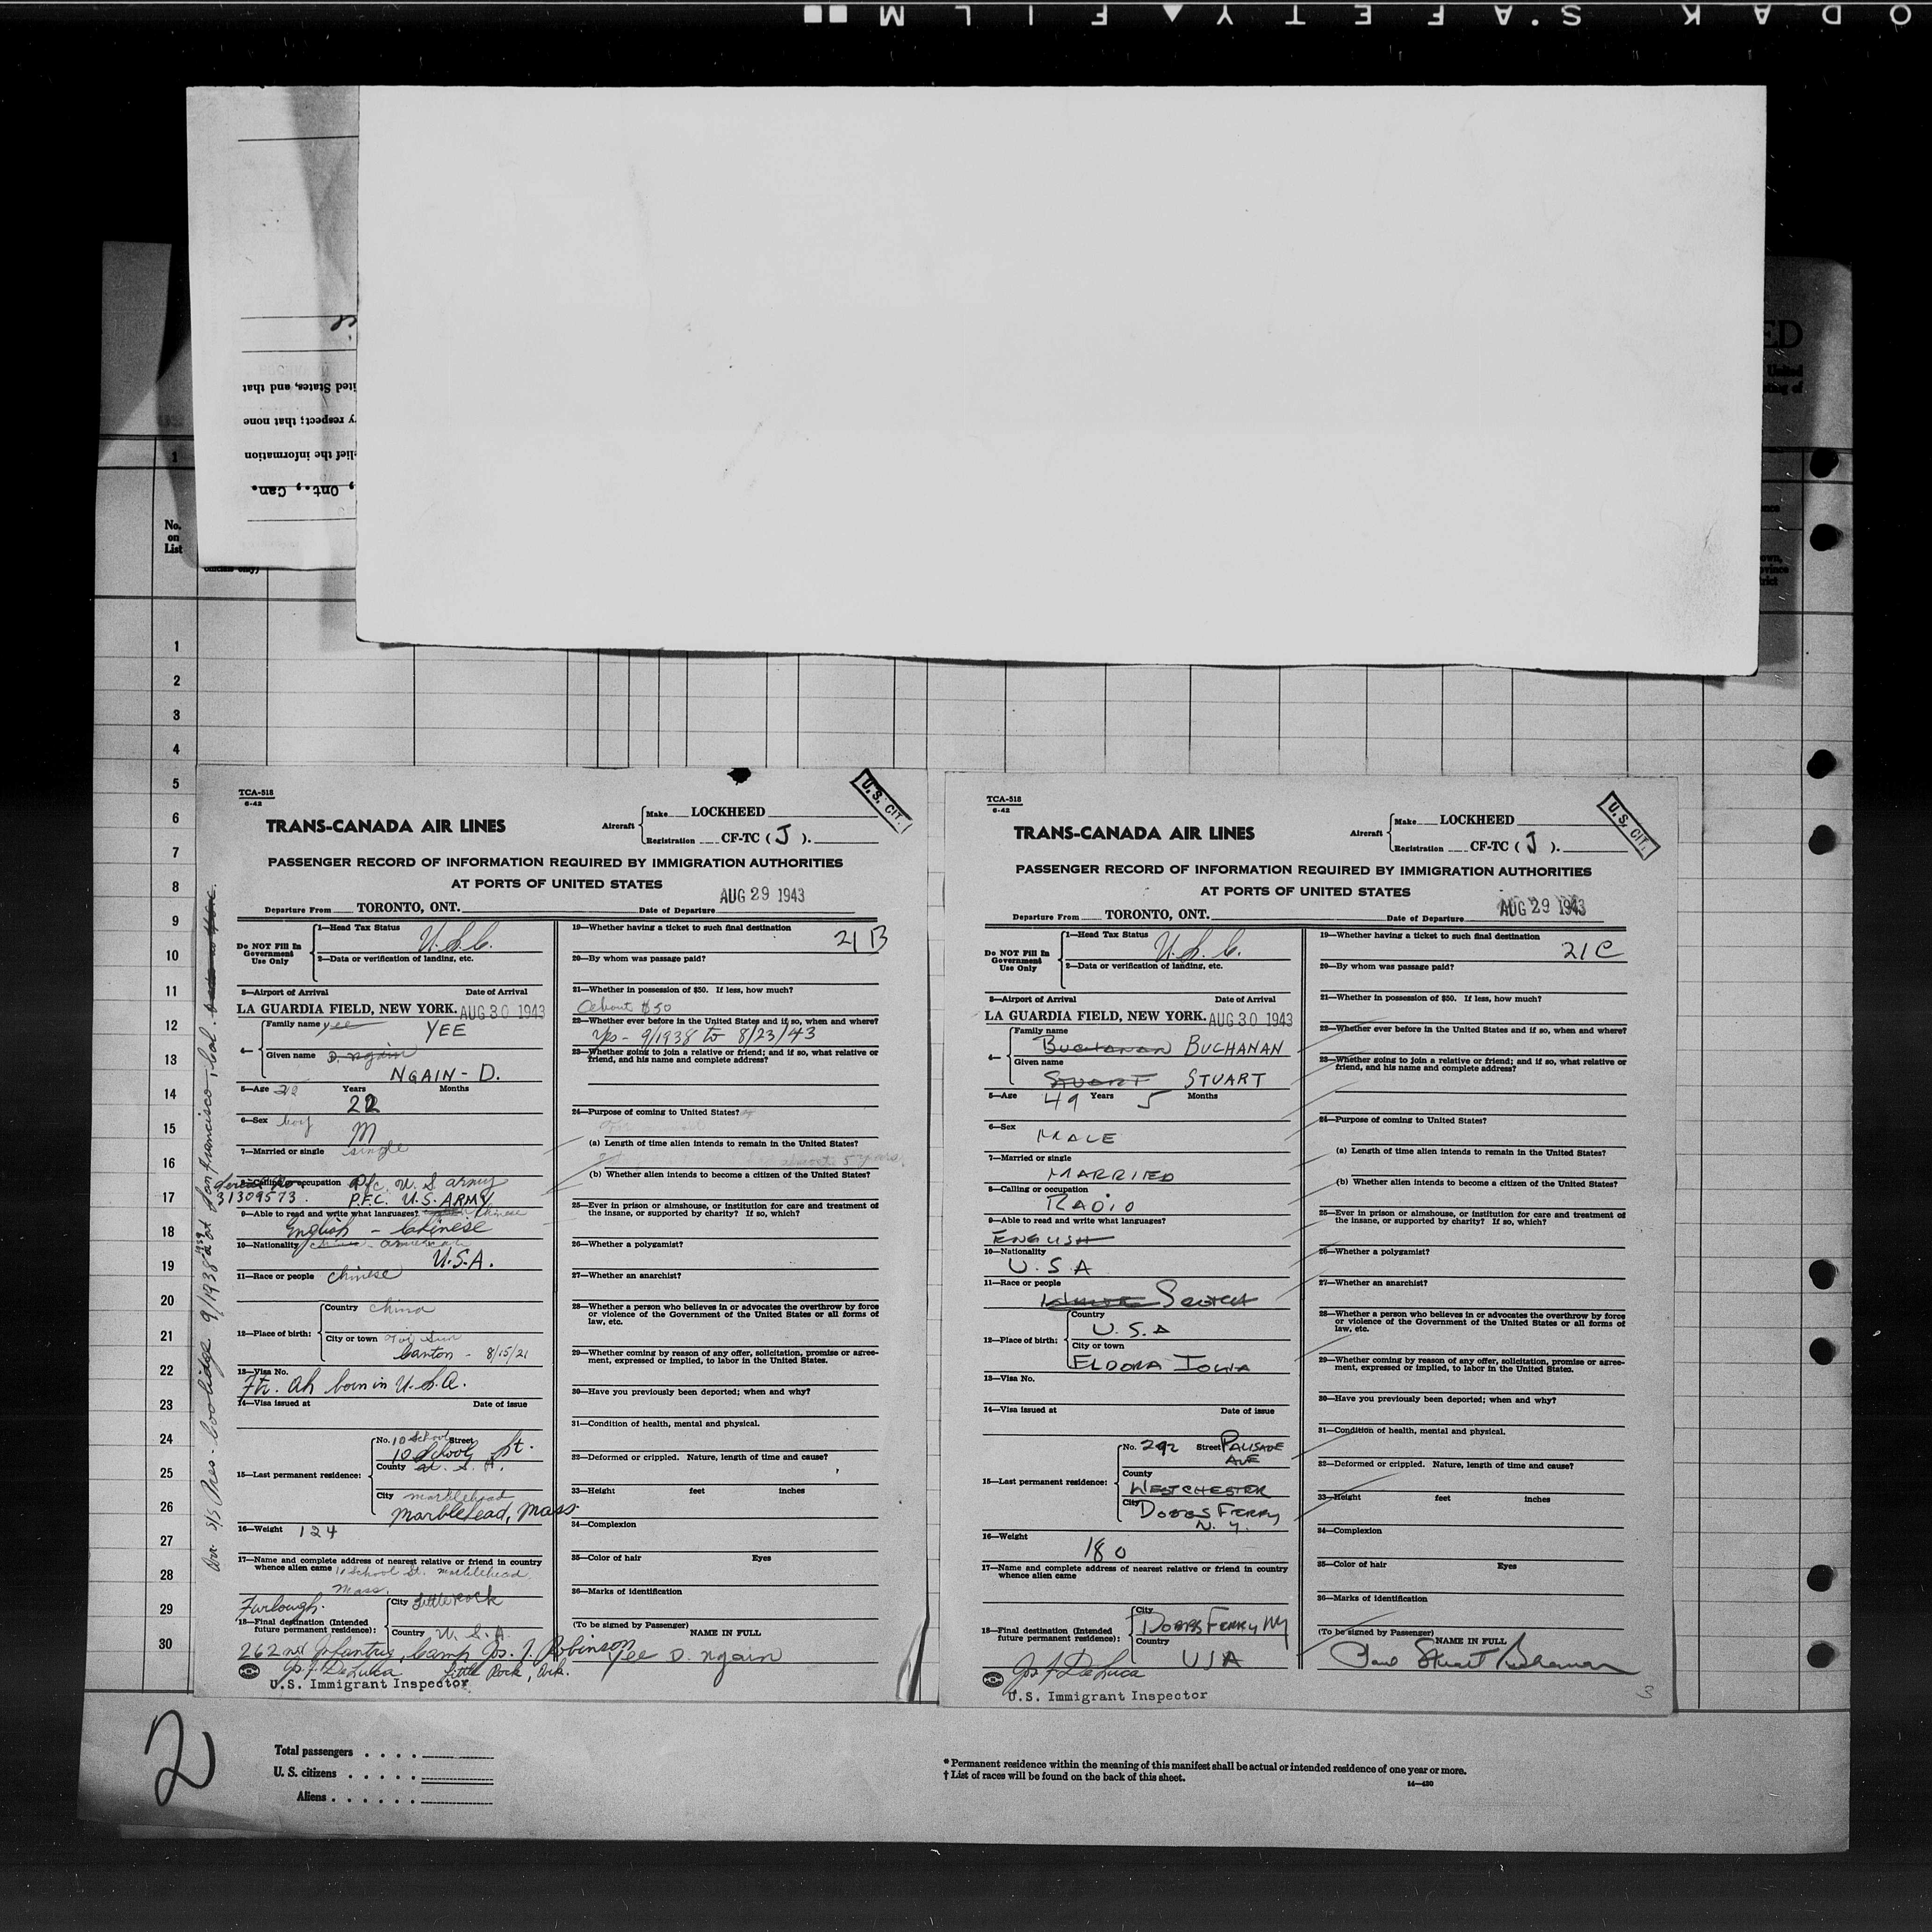 KODAK S'AFETY FILM
ited States, and that
y respect; that none
lief the information
, Ont., Can.
ED
United
No.
on
List
1
1
2
3
4
5
6
7
8
9
10
11
12
13
14
15
16
17
18
19
20
21
22
23
24
25
26
27
28
29
30
TCA-518
6-42
U.S. CIT.
TRANS-CANADA AIR LINES
Aircraft
Make LOCKHEED
Registration CF-TC ( J ).
PASSENGER RECORD OF INFORMATION REQUIRED BY IMMIGRATION AUTHORITIES
AT PORTS OF UNITED STATES
AUG 29 1943
Departure From TORONTO, ONT. Date of Departure
Do NOT Fill In
Government
Use Only
1—Head Tax Status U.S.C.
2—Data or verification of landing, etc.
3—Airport of Arrival Date of Arrival
LA GUARDIA FIELD, NEW YORK. AUG 30 1943
4— Family name yee YEE
Given name D. ngain
NGAIN - D.
5—Age 22 Years Months
22
6—Sex boy M
7—Married or single single
8—Calling or occupation Pfc. U.S army
Serial No.
31309573. P.F.C. U.S. ARMY
9—Able to read and write what languages? Chinese
English - Chinese
10—Nationality american
U.S.A.
11—Race or people chinese
12—Place of birth: Country china
City or town Toi Sun
Canton - 8/15/21
13—Visa No.
Ft. Ah born in U.S.A.
14—Visa issued at Date of issue
15—Last permanent residence: No. 10 School Street
10 School St.
County U. S. A.
City marblehead
Marblehead, Mass.
16—Weight 124
17—Name and complete address of nearest relative or friend in country
whence alien came 10 School St. marblehead
mass.
Furlough.
18—Final destination (Intended
future permanent residence): City Little Rock
Country U. S. A.
262nd Infantry, Camp Jos. T. Robinson
Little Rock, Ark.
Jos. F. DeLuca
U.S. Immigrant Inspector
Arr. S/S Pres. Coolidge 9/1938 at San Francisco, Cal.
19—Whether having a ticket to such final destination
21 B
20—By whom was passage paid?
21—Whether in possession of $50. If less, how much?
About $50
22—Whether ever before in the United States and if so, when and where?
Yes - 9/1938 to 8/23/43
23—Whether going to join a relative or friend; and if so, what relative or
friend, and his name and complete address?
24—Purpose of coming to United States?
(a) Length of time alien intends to remain in the United States?
about 5 years.
(b) Whether alien intends to become a citizen of the United States?
25—Ever in prison or almshouse, or institution for care and treatment of
the insane, or supported by charity? If so, which?
26—Whether a polygamist?
27—Whether an anarchist?
28—Whether a person who believes in or advocates the overthrow by force
or violence of the Government of the United States or all forms of
law, etc.
29—Whether coming by reason of any offer, solicitation, promise or agree-
ment, expressed or implied, to labor in the United States.
30—Have you previously been deported; when and why?
31—Condition of health, mental and physical.
32—Deformed or crippled. Nature, length of time and cause?
33—Height feet inches
34—Complexion
35—Color of hair Eyes
36—Marks of identification
(To be signed by Passenger)
NAME IN FULL
Yee D. ngain
TCA-518
6-42
U.S. CIT.
TRANS-CANADA AIR LINES
Aircraft
Make LOCKHEED
Registration CF-TC ( J ).
PASSENGER RECORD OF INFORMATION REQUIRED BY IMMIGRATION AUTHORITIES
AT PORTS OF UNITED STATES
AUG 29 1943
Departure From TORONTO, ONT. Date of Departure
Do NOT Fill In
Government
Use Only
1—Head Tax Status U.S.C.
2—Data or verification of landing, etc.
3—Airport of Arrival Date of Arrival
LA GUARDIA FIELD, NEW YORK. AUG 30 1943
4— Family name
BUCHANAN BUCHANAN
Given name
STUART STUART
5—Age 49 Years 5 Months
6—Sex
MALE
7—Married or single
MARRIED
8—Calling or occupation
RADIO
9—Able to read and write what languages?
ENGLISH
10—Nationality
U.S.A
11—Race or people
SCOTCH
12—Place of birth: Country
U.S.A
City or town
ELDORA IOWA
13—Visa No.
14—Visa issued at Date of issue
15—Last permanent residence: No. 292 Street PALISADE
AVE
County
WESTCHESTER
City DOBBS FERRY
N.Y.
16—Weight
180
17—Name and complete address of nearest relative or friend in country
whence alien came
18—Final destination (Intended
future permanent residence): City
DOBBS FERRY NY
Country
USA
Jos. F. DeLuca
U.S. Immigrant Inspector
19—Whether having a ticket to such final destination
21 C
20—By whom was passage paid?
21—Whether in possession of $50. If less, how much?
22—Whether ever before in the United States and if so, when and where?
23—Whether going to join a relative or friend; and if so, what relative or
friend, and his name and complete address?
24—Purpose of coming to United States?
(a) Length of time alien intends to remain in the United States?
(b) Whether alien intends to become a citizen of the United States?
25—Ever in prison or almshouse, or institution for care and treatment of
the insane, or supported by charity? If so, which?
26—Whether a polygamist?
27—Whether an anarchist?
28—Whether a person who believes in or advocates the overthrow by force
or violence of the Government of the United States or all forms of
law, etc.
29—Whether coming by reason of any offer, solicitation, promise or agree-
ment, expressed or implied, to labor in the United States.
30—Have you previously been deported; when and why?
31—Condition of health, mental and physical.
32—Deformed or crippled. Nature, length of time and cause?
33—Height feet inches
34—Complexion
35—Color of hair Eyes
36—Marks of identification
(To be signed by Passenger)
NAME IN FULL
Paul Stuart Buchanan
3
2
Total passengers
U. S. citizens
Aliens
* Permanent residence within the meaning of this manifest shall be actual or intended residence of one year or more.
† List of races will be found on the back of this sheet.
14—430